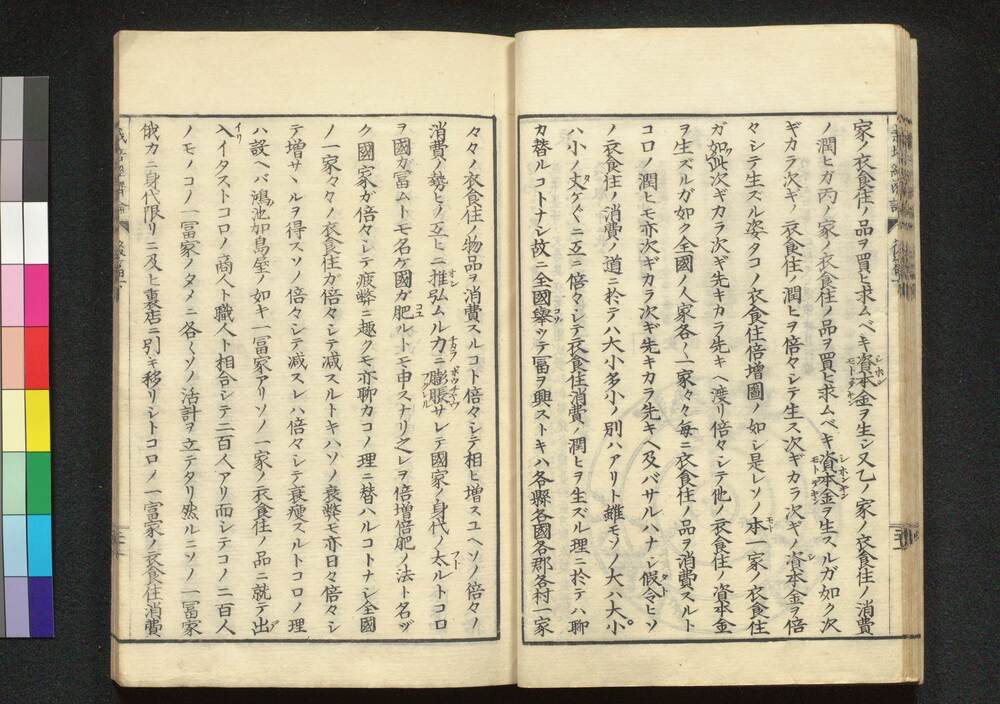 家ノ衣食住ノ品ヲ買ヒ求ムベキ資本金ヲ生シ又乙ノ家ノ衣食住ノ消費
ノ潤ヒガ丙ノ家ノ衣食住ノ品ヲ買ヒ求ムベキ資本金ヲ生スルガ如ク次
ギカラ次ギノ衣食住ノ潤ヒヲ倍々シテ生ス次ギカラ次ギノ資本金ヲ倍
々シテ生ズル姿タコノ衣食住倍増圖ノ如シ是レソノ本一家ノ衣食住
ガ如此次ギカラ次ギ先キカラ先キヘ渡リ倍々シテ他ノ衣食住ノ資本金
ヲ生ズルガ如ク全國ノ人家各〱一家々々毎ニ衣食住ノ品ヲ消費スルト
コロノ潤ヒモ亦次ギカラ次ギ先キカラ先キヘ及バサルハナシ假令ヒソ
ノ衣食住ノ消費ノ道ニ於テハ大小多少ノ別ハアリト雖モソノ大ハ大小
ハ小ノ丈ケ〱ニ互ニ倍々シテ衣食住消費ノ潤ヒヲ生ズル理ニ於テハ聊
カ替ルコトナシ故ニ全國擧ツテ冨ヲ興ストキハ各縣各國各郡各村一家
々々ノ衣食住ノ物品ヲ消費スルコト倍々シテ相ヒ増スユヘソノ倍々ノ
消費ノ勢ヒノ互ヒニ推弘ムル力ニ膨脹サレテ國家ノ身代ノ太ルトコロ
ヲ國ガ冨ムトモ名ケ國ガ肥ルトモ申スナリ之レヲ倍増倍肥ノ法ト名ヅ
ク國家ガ倍々シテ疲弊ニ趣クモ亦聊カコノ理ニ替ハルコトナシ全國
ノ一家々々ノ衣食住ガ倍々シテ减スルトキハソノ衰弊モ亦日々倍々シ
テ増サヽルヲ得スソノ倍々シテ减スレハ倍々シテ衰痩スルトコロノ理
ハ設ヘバ鴻池加島屋ノ如キ一冨家アリソノ一家ノ衣食住ノ品ニ就テ出
入イタストコロノ商人ト職人ト相合シテ二百人アリ而シテコノ二百人
ノモノコノ一冨家ノタメニ各〱ソノ活計ヲ立テタリ然ルニソノ一冨家
俄カニ身代限リニ及ヒ裏店ニ引キ移リシトコロノ一冨家ノ衣食住消費